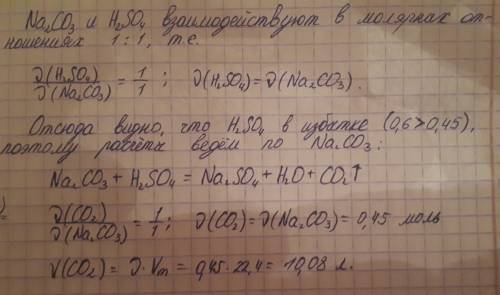 Na₂CO₃ и H₂SO₄ взаимодействуют в молярных от-
ношениях 1:1, т.е.
ν(H₂SO₄)/ν(Na₂CO₃) = 1/1 ; ν(H₂SO₄) = ν(Na₂CO₃).
Отсюда видно, что H₂SO₄ в избытке (0,6>0,45),
поэтому расчёты ведём по Na₂CO₃:
Na₂CO₃ + H₂SO₄ = Na₂SO₄ + H₂O + CO₂↑
ν(CO₂)/ν(Na₂CO₃) = 1/1 ; ν(CO₂) = ν(Na₂CO₃) = 0,45 моль
V(CO₂) = ν · Vm = 0,45 · 22,4 = 10,08 л.